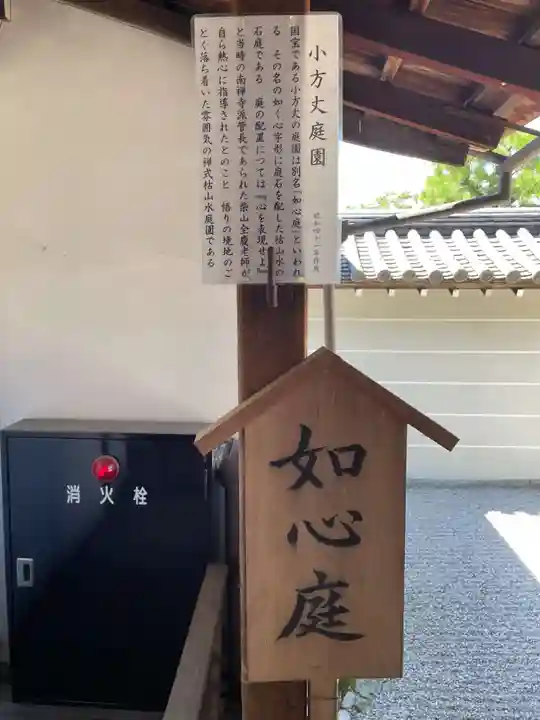 小方丈庭園
昭和四十一年作庭
国宝である小方丈の庭園は別名『如心庭』といわれ
る その名の如く心字形に庭石を配した枯山水の
石庭である 庭の配置につては『心を表現せよ』
と当時の南禅寺派管長であられた柴山全慶老師が、
自ら熱心に指導されたとのこと 悟りの境地のご
とく落ち着いた雰囲気の禅式枯山水庭園である
如心庭
消火栓